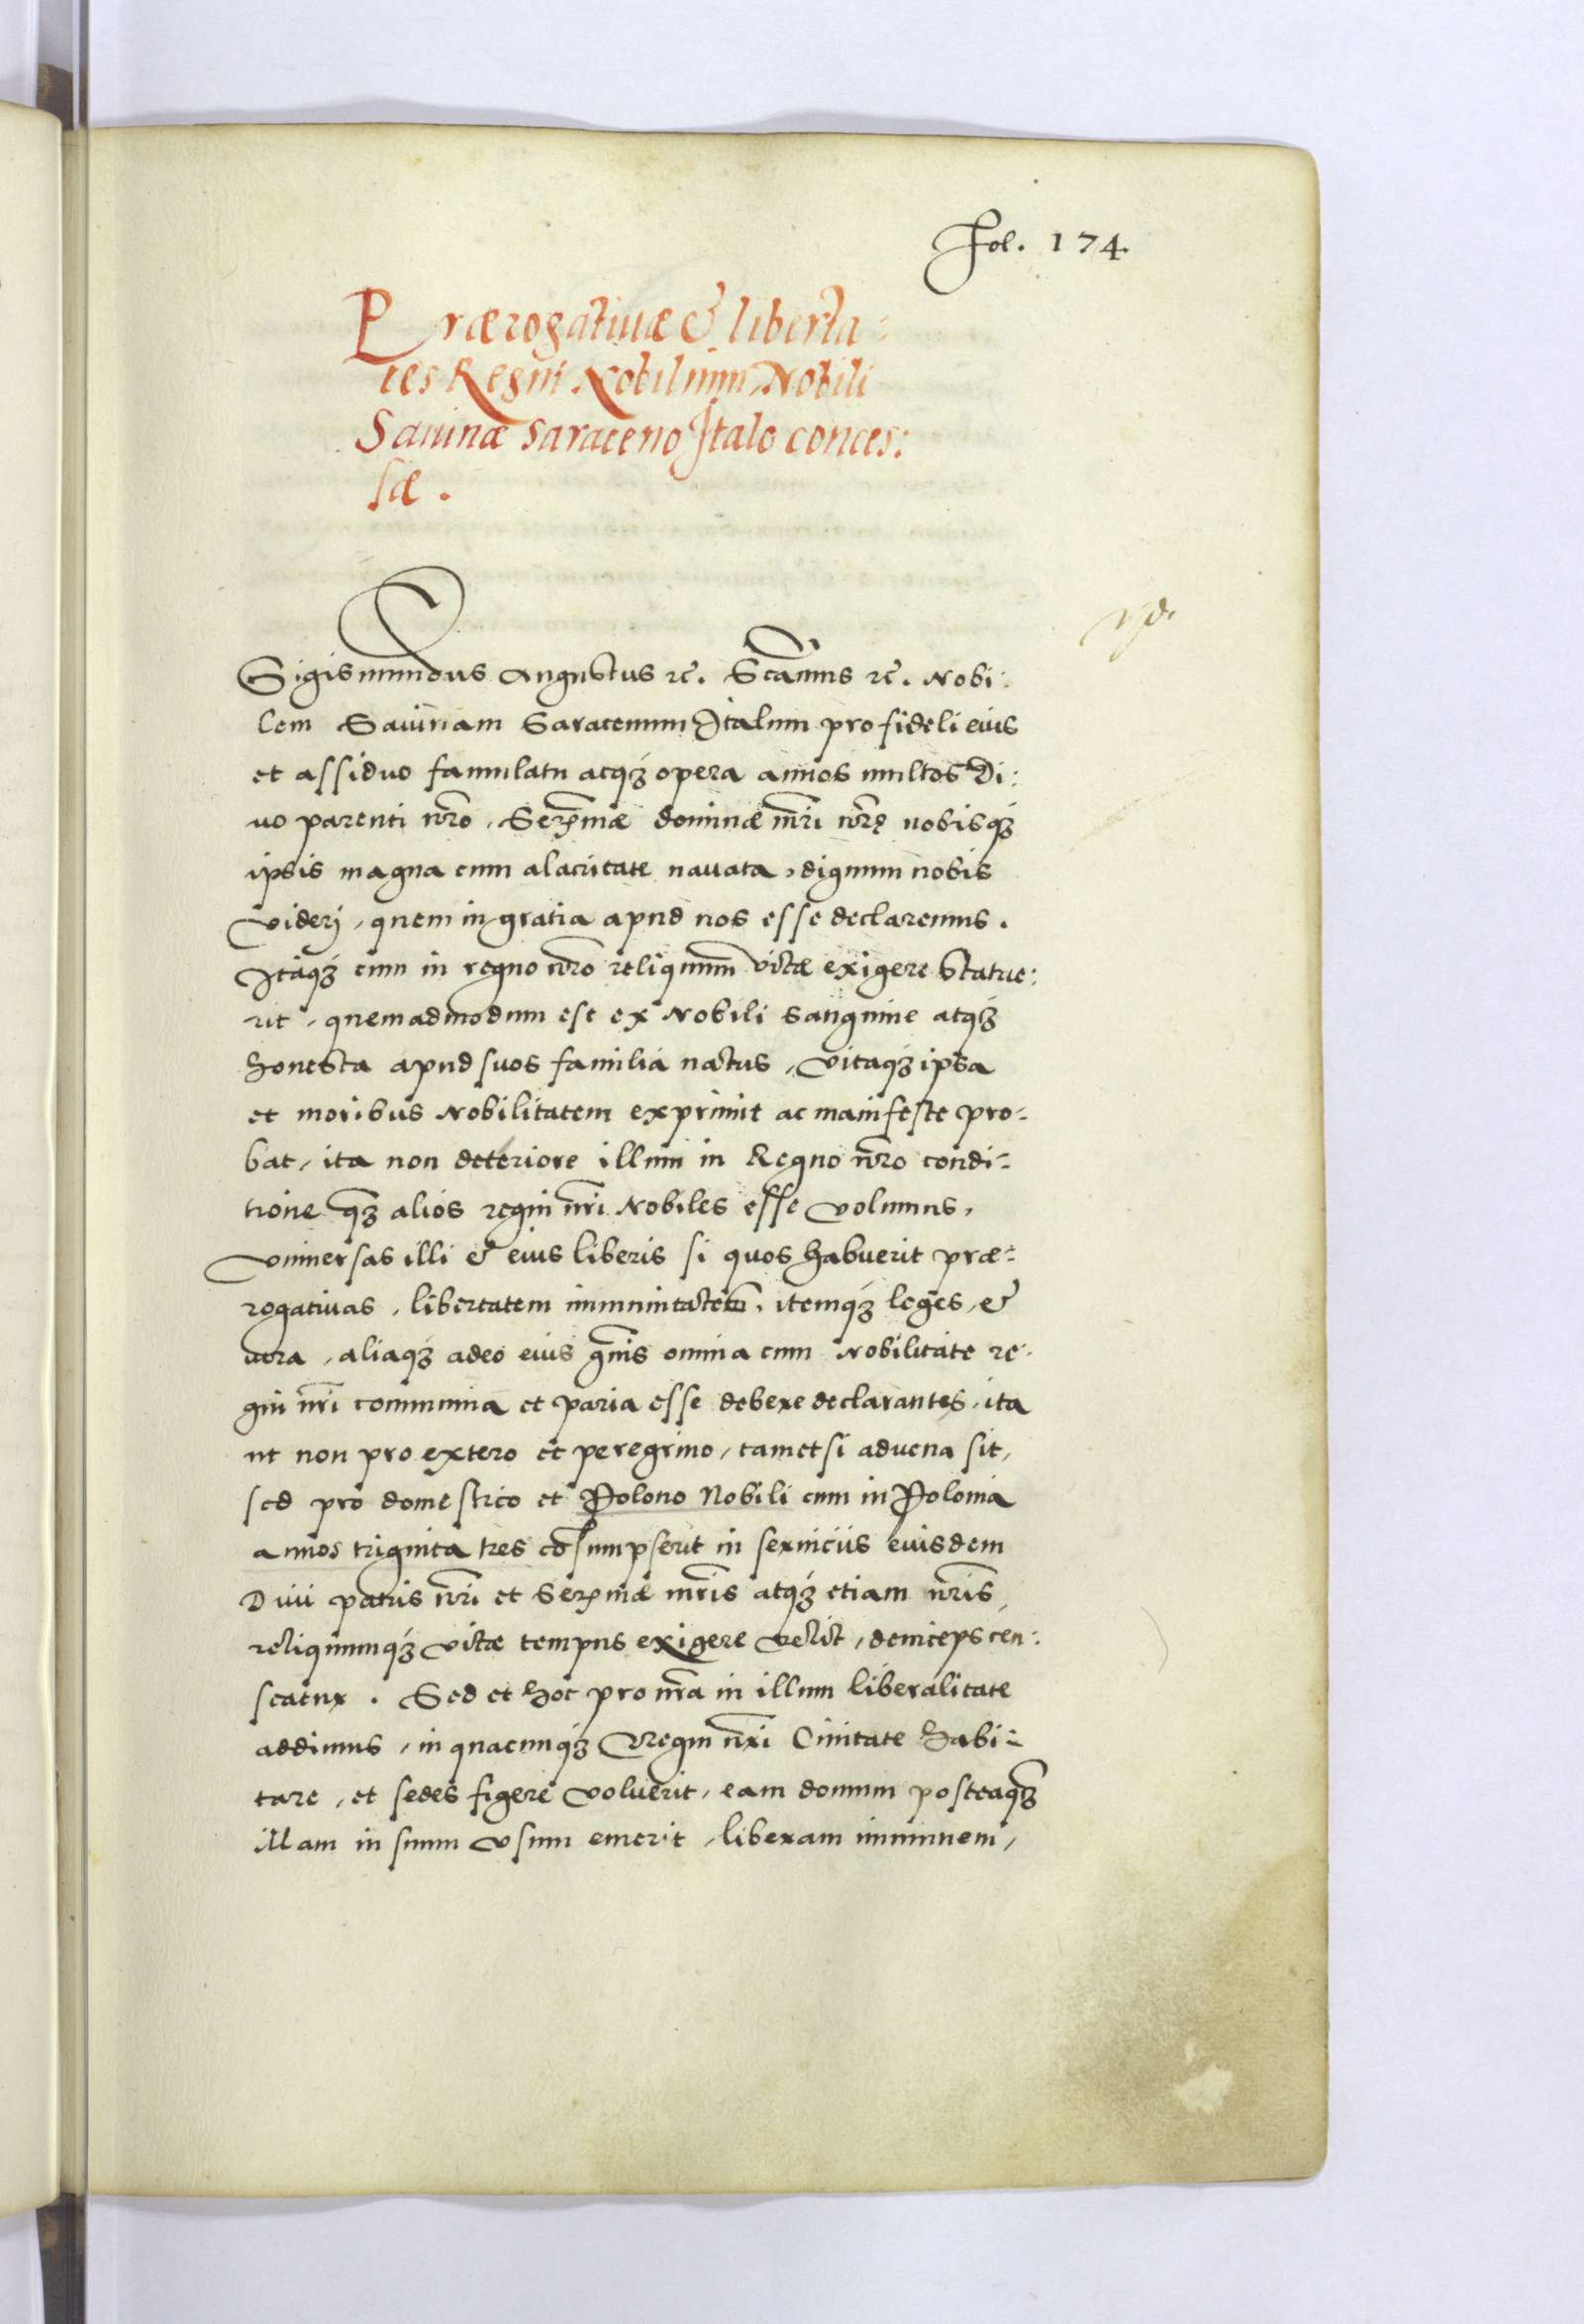 Fol. 174.
Prærogatiuæ & liberta:
tes Regni Nobilium, Nobili
Sauinæ Saraceno Italo conces:
sæ.
Sigismundus Augustus ꝛc̃. Sc̃amus ꝛc̃. Nobi:
lem Sauinam Saracenum Italum pro fideli eius
et assiduo famulatu atqꝫ opera annos multos Di:
uo parenti nr̃o, Serᷤmæ dominæ mr̃i nr̃ę nobisqꝫ
ipsis magna cum alacritate nauata, dignum nobis
videri, quem in gratia apud nos esse declaremus.
Itaqꝫ cum in regno nr̃o reliquum vitæ exigere statue:
rit, quemadmodum est ex Nobili sanguine atqꝫ
honesta apud suos familia natus, vitaqꝫ ipsa
et moribus Nobilitatem exprimit ac manifeste pro:
bat, ita non deteriore illum in Regno nr̃o condi:
tione qꝫ̃ alios regni nr̃i Nobiles esse volumus,
vniuersas illi & eius liberis si quos habuerit præ:
rogatiuas, libertatem itemqꝫ leges, &
iura, aliaqꝫ adeo eius gñis omnia cum Nobilitate re:
gni nr̃i communia et paria esse debere declarantes, ita
ut non pro extero et peregrino, tametsi aduena sit,
sed pro domestico et Polono Nobili cum in Polonia
annos triginta tres cõsumpserit in seruiciis eiusdem
Diui patris nr̃i et Serᷤmæ mr̃is atqꝫ etiam nr̃is,
reliquumqꝫ vitæ tempus exigere velit, deinceps cen:
seatur. Sed et hoc pro nr̃a in illum liberalitate
addimus, in quacunqꝫ Regni nr̃i Ciuitate habi:
tare, et sedes figere voluerit, eam domum posteaqꝫ̃
illam in suum vsum emerit, liberam immunem,